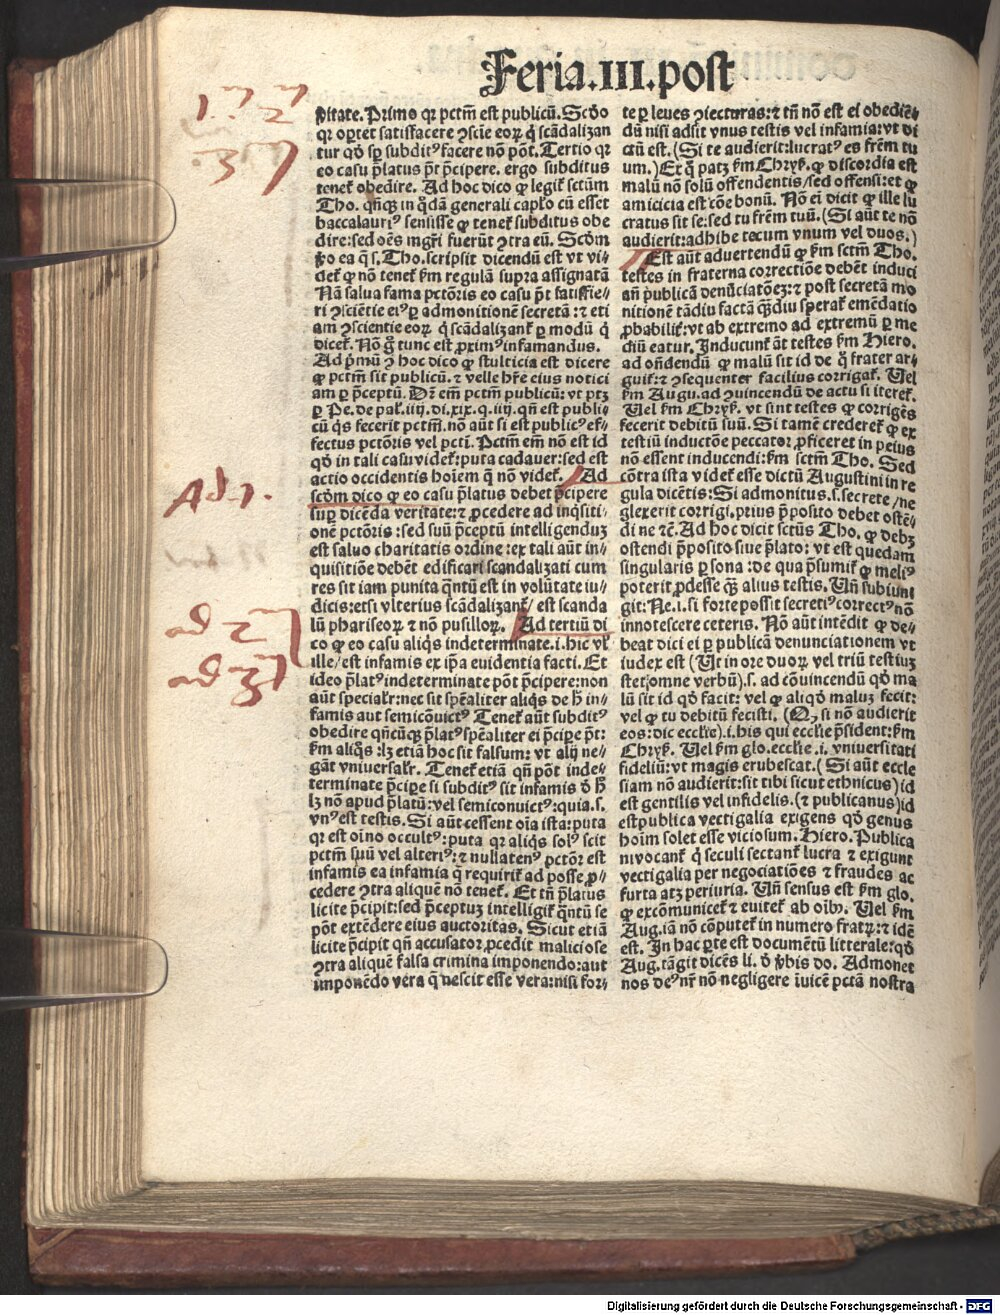 Feria.III.post
ꝑitate. Primo qꝛ pctm̄ est publicū. Scd̄o
qꝛ optet satisfacere ꝯscīe eoꝝ q̇ scādalizan
tur qd̄ sꝑ subditꝰ facere nō pōt. Tertio qꝛ
eo casu p̄latus pt̄ p̄cipere. ergo subditus
tenet᷑ obedire. Ad hoc dico ꝙ legit᷑ sctūm
Tho. qn̄qꝫ in q̇dā generali capl̓o cū esset
baccalauriꝰ sensisse ꝙ tenet᷑ subditus obe
dire: sed oēs mgr̄i fuerūt ꝯtra eū. Scd̄m
ea q̄ s. Tho. scripsit dicendū est vt vi⸗
det᷑ ꝙ nō tenet᷑ ẜm regulā supra assignatā
Nā salua fama pctōris eo casu pt̄ satisfie⸗
ri ꝯsciētie eiꝰ ꝑ admonitionē secretā: ⁊ eti
am ꝯscientie eoꝝ q̇ scādalizant᷑ ꝑ modū q̇
dicet᷑. Nō g̊ tunc est ꝓximꝰ infamandus.
Ad p̄mū ꝯ hoc dico ꝙ stulticia est dicere
ꝙ pctm̄ sit publicū. ⁊ velle hr̄e eius notici
am ꝑ p̄ceptū. Dr̄ em̄ pctm̄ publicū: vt ptꝫ
ꝑ Pe. de pal᷑. iiij. di. xix. q. iiij. qn̄ est publi⸗
cū q̇s fecerit pctm̄. nō aūt si est publicꝰ ef⸗
fectus pctōris vel pctī. Pctm̄ em̄ nō est id
qd̄ in tali casu videt᷑: puta cadauer: sed est
actio occidentis hoīem q̄ nō videt᷑. Ad
scd̄m dico ꝙ eo casu p̄latus debet p̄cipere
suꝑ dicēda veritate: ⁊ ꝓcedere ad inq̇siti⸗
onē pctōris: sed suū p̄ceptū intelligenduꝫ
est saluo charitatis ordine: ex tali aūt in⸗
quisitiōe debēt edificari scandalizati cum
res sit iam punita q̄ntū est in volūtate iu⸗
dicis: etsi vlterius scādalizant᷑/ est scanda
lū phariseoꝝ ⁊ nō pusilloꝝ. Ad tertiū di
co ꝙ eo casu aliq̇s indeterminate. i. hic vl᷑
ille/ est infamis ex ip̄a euidentia facti. Et
ideo p̄latꝰ indeterminate pōt p̄cipere: non
aūt specialr̄: nec sit spēaliter aliq̇s de h̄ in⸗
famis aut semicōuictꝰ Tenet᷑ aūt subditꝰ
obedire qn̄cūqꝫ p̄latꝰ spēaliter ei p̄cipe pt̄:
ẜm aliq̇s: lꝫ etiā hoc sit falsum: vt alij ne⸗
gāt vniuersalr̄. Tenet᷑ etiā qn̄ pōt inde⸗
terminate p̄cipe si subditꝰ sit infamis d̄ h̄
lꝫ nō apud p̄latū: vel semiconuictꝰ: quia. s.
vnꝰ est testis. Si aūt cessent oīa ista: puta
qꝛ est oīno occultꝰ: puta qꝛ aliq̇s solꝰ scit
pctm̄ suū vel alteriꝰ: ⁊ nullatenꝰ pctōr est
infamis ea infamia q̄ requirit᷑ ad posse ꝓ⸗
cedere ꝯtra aliquē nō tenet᷑. Et tn̄ p̄latus
licite p̄cipit: sed p̄ceptuꝫ intelligit᷑ q̄ntū se
pōt extēdere eius auctoritas. Sicut etiā
licite p̄cipit qn̄ accusator ꝓcedit maliciose
ꝯtra aliquē falsa crimina imponendo: aut
imponēdo vera q̄ nescit esse vera: nisi for⸗
te ꝑ leues ꝯiecturas: ⁊ tn̄ nō est ei obediē⸗
dū nisi adsit vnus testis vel infamia: vt di
ctū est. (Si te audierit: lucratꝰ es frēm tu
um.) Ex q̇ patꝫ ẜm Chryẜ. ꝙ discordia est
malū nō solū offendentis/ sed offensi: et ꝙ
amicicia est cōe bonū. Nō em̄ dicit ꝙ ille lu
cratus sit se: sed tu frēm tuū. (Si aūt te nō
audierit: adhibe tecum vnum vel duos.)
Est aūt aduertendū ꝙ ẜm sctm̄ Tho.
testes in fraterna correctiōe debēt induci
an̄ publicā denūciatōeꝫ: ⁊ post secretā mo
nitionē tādiu factā q̄diu sperat᷑ emēdatio
ꝓbabilit᷑: vt ab extremo ad extremū ꝑ me
diū eatur. Inducunt᷑ āt testes ẜm Hiero.
ad on̄dendū ꝙ malū sit id de q̇ frater ar⸗
guit᷑: ⁊ ꝯsequenter facilius corrigat᷑. Uel
ẜm Augu. ad ꝯuincendū de actu si iteret᷑.
Uel ẜm Chryẜ. vt sint testes ꝙ corrigēs
fecerit debitū suū. Si tamē crederet᷑ ꝙ ex
testiū inductōe peccator ꝓficeret in peius
nō essent inducendi: ẜm sctm̄ Tho. Sed
cōtra ista videt᷑ esse dictū Augustini in re
gula dicētis: Si admonitus. s. secrete/ ne
glexerit corrigi. prius p̄posito debet ostē⸗
di ne ⁊c̄. Ad hoc dicit sctūs Tho. ꝙ debꝫ
ostendi p̄posito siue p̄lato: vt est quedam
singularis ꝑsona: de qua p̄sumit᷑ ꝙ meliꝰ
poterit ꝓdesse q̄ꝫ alius testis. Un̄ subiun
git: Ne. i. si forte possit secretiꝰ correctꝰ nō
innotescere ceteris. Nō aūt intēdit ꝙ de⸗
beat dici ei ꝑ publicā denunciationem vt
iudex est (Ut in ore duoꝝ vel triū testiuꝫ
stet: omne verbū). s. ad cōuincendū qd̄ ma
lū sit id qd̄ facit: vel ꝙ aliqd̄ maluꝫ fecit:
vel ꝙ tu debitū fecisti. (Qꝫ si nō audierit
eos: dic eccl̓ie). i. his qui eccl̓ie p̄sident: ẜm
Chryẜ. Uel ẜm glo. eccl̓ie. i. vniuersitati
fideliū: vt magis erubescat. (Si aūt eccle
siam nō audierit: sit tibi sicut ethnicus) id
est gentilis vel infidelis. (⁊ publicanus) id
est publica vectigalia exigens qd̄ genus
hoīm solet esse viciosum. Hiero. Publica
ni vocant᷑ q̇ seculi sectant᷑ lucra ⁊ exigunt
vectigalia per negociatiōes ⁊ fraudes ac
furta atqꝫ periuria. Un̄ sensus est ẜm glo.
ꝙ excōmunicet᷑ ⁊ euitet᷑ ab oībꝰ. Uel ẜm
Aug. iā nō cōputet᷑ in numero fratꝝ: ⁊ idē
est. In hac ꝑte est documētū litterale: qd̄
Aug. tāgit dicēs li. d̄ v̄bis do. Admonet
nos deꝰ nr̄ nō negligere iuicē pctā nostra
Ad 1.
ad 2
ad 3
Digitalisierung gefördert durch die Deutsche Forschungsgemeinschaft - DFG